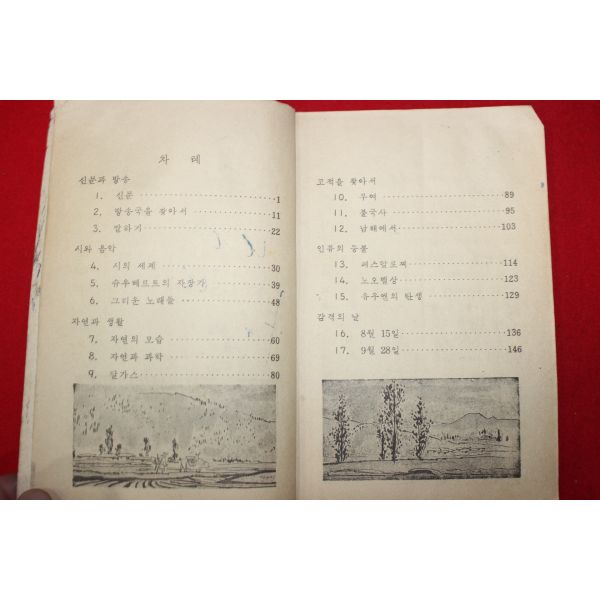 차 례
신문과 방송
1. 신문 ··················1
2. 방송국을 찾아서 ··················11
3. 말하기 ··················22
시와 음악
4. 시의 세계 ··················30
5. 슈우베르트의 자장가 ··················39
6. 그리운 노래들 ··················48
자연과 생활
7. 자연의 모습 ··················60
8. 자연과 과학 ··················69
9. 달가스 ··················80
고적을 찾아서
10. 부여 ··················89
11. 불국사 ··················95
12. 남해에서 ··················103
인류의 등불
13. 페스탈로찌 ··················114
14. 노오벨상 ··················123
15. 유우엔의 탄생 ··················129
감격의 날
16. 8월 15일 ··················136
17. 9월 28일 ··················146